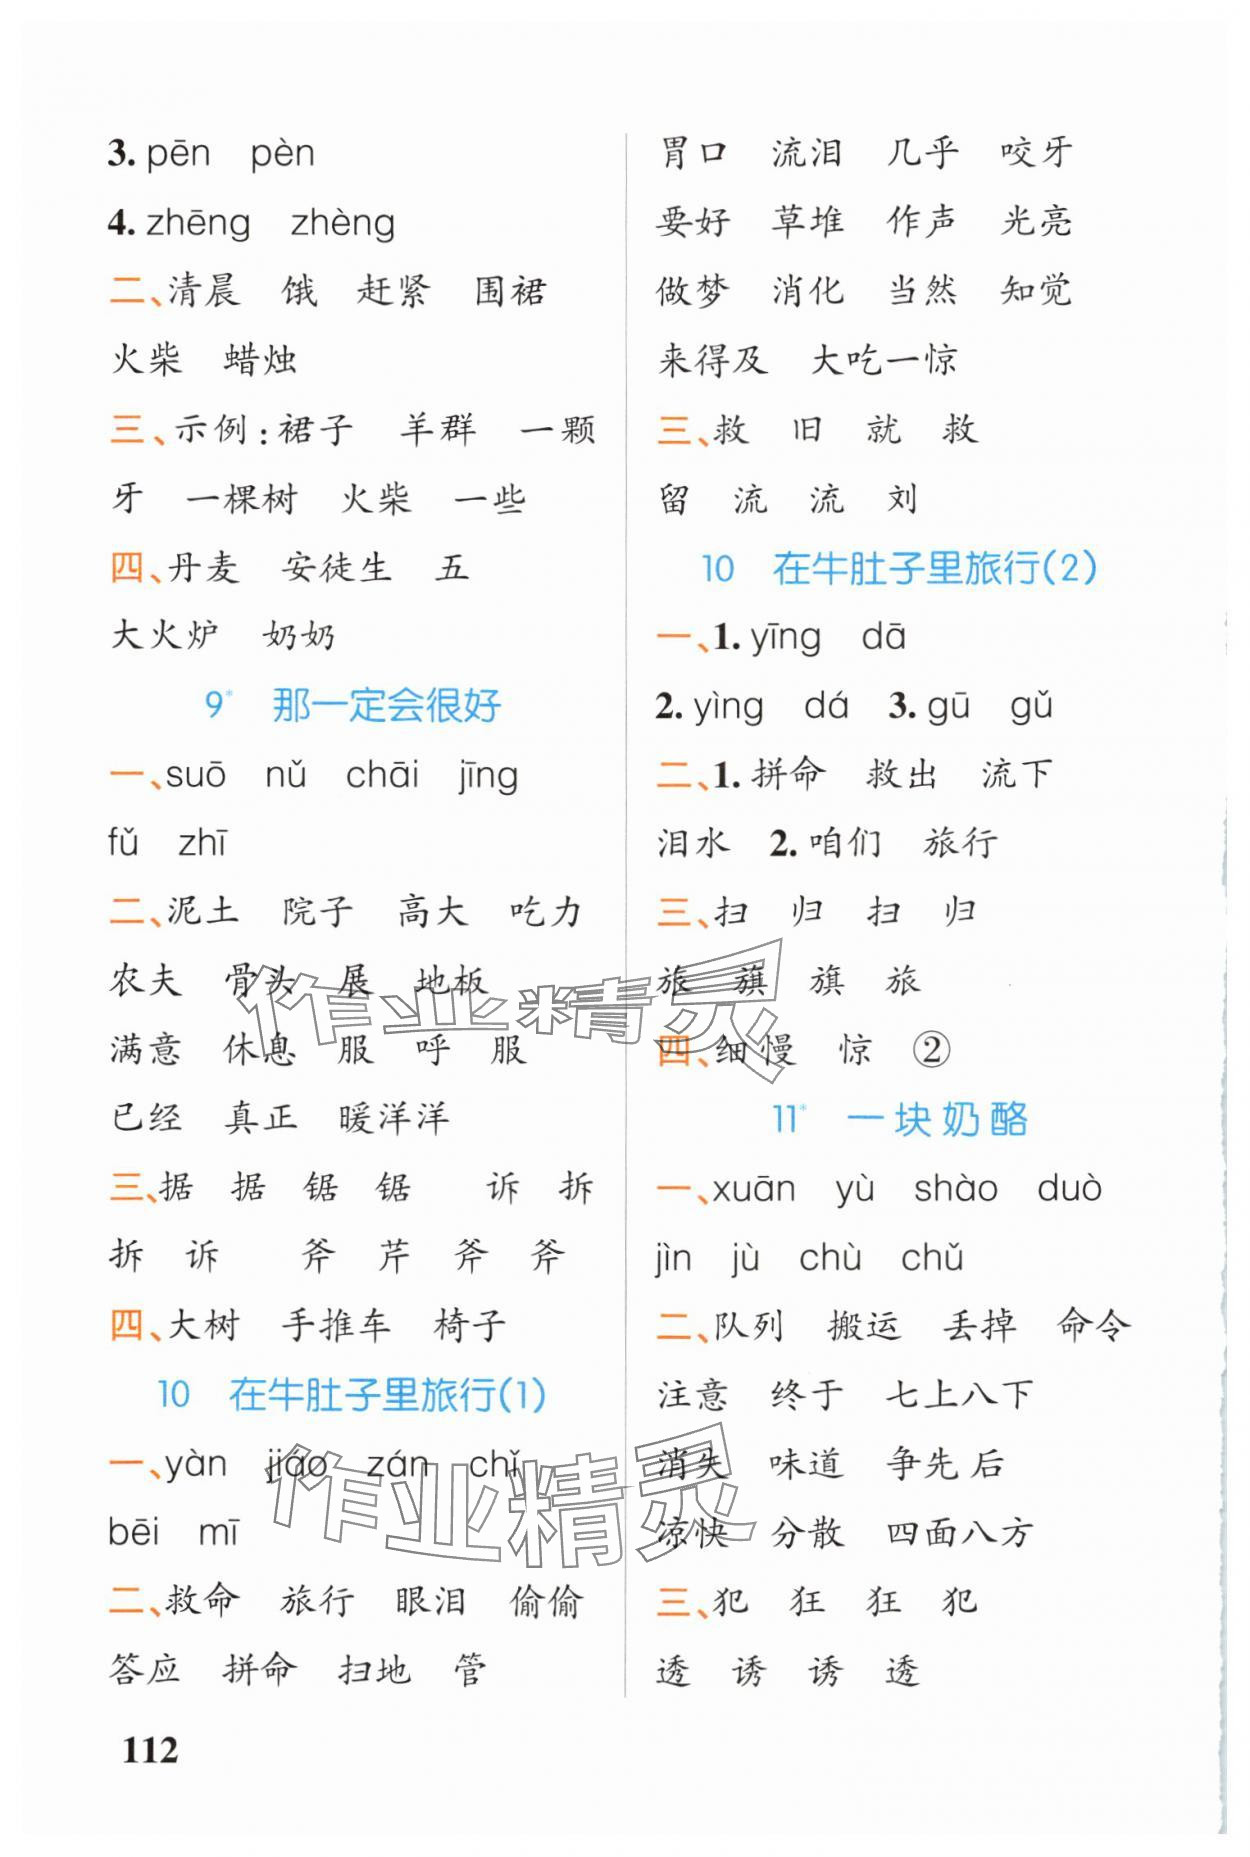 3. pēn pèn
4. zhēng zhèng
二、清晨 饿 赶紧 围裙
火柴 蜡烛
三、示例：裙子 羊群 一颗
牙 一棵树 火柴 一些
四、丹麦 安徒生 五
大火炉 奶奶
9* 那一定会很好
一、suō nǔ chāi jīng
fǔ zhī
二、泥土 院子 高大 吃力
农夫 骨头 展 地板
满意 休息 服 呼 服
已经 真正 暖洋洋
三、据 据 锯 锯 诉 拆
拆 诉 斧 芹 斧 斧
四、大树 手推车 椅子
10 在牛肚子里旅行(1)
一、yàn jiáo zán chǐ
bēi mī
二、救命 旅行 眼泪 偷偷
答应 拼命 扫地 管
胃口 流泪 几乎 咬牙
要好 草堆 作声 光亮
做梦 消化 当然 知觉
来得及 大吃一惊
三、救 旧 就 救
留 流 流 刘
10 在牛肚子里旅行(2)
一、1. yīng dā
2. yìng dá 3. gū gǔ
二、1. 拼命 救出 流下
泪水 2. 咱们 旅行
三、扫 归 扫 归
旅 旗 旗 旅
四、细 慢 惊 ②
11* 一块奶酪
一、xuān yù shào duò
jìn jù chù chǔ
二、队列 搬运 丢掉 命令
注意 终于 七上八下
消失 味道 争先后
凉快 分散 四面八方
三、犯 狂 狂 犯
透 诱 诱 透
112
作业精灵
作业精灵